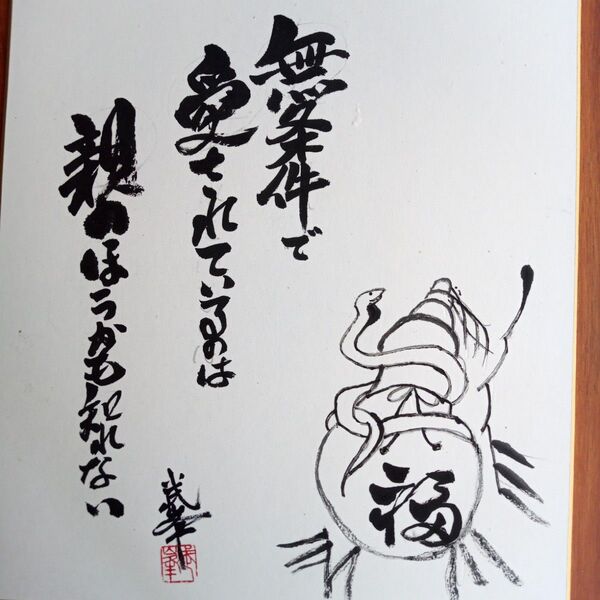 無条件で
愛されているのは
親のほうかも知れない
福